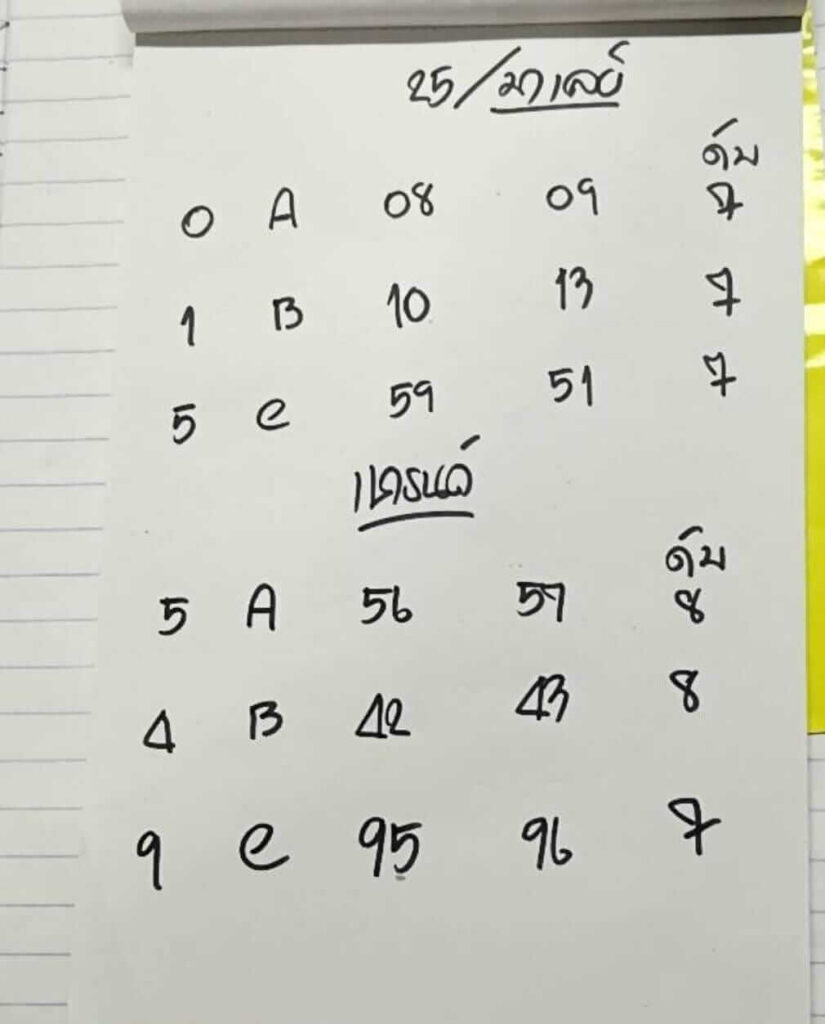 25/มาเลย์
ดับ
0 A 08 09 7
1 B 10 13 7
5 C 59 51 7
แกรนด์
ดับ
5 A 56 57 8
4 B 42 43 8
9 C 95 96 7